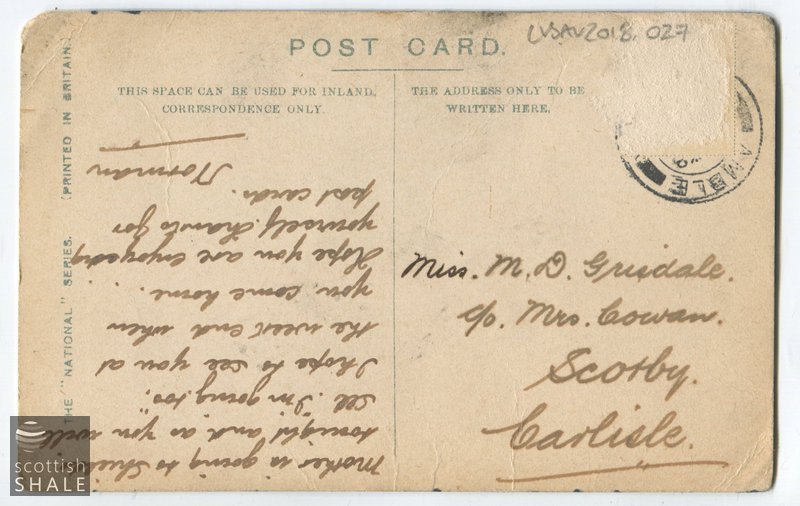 LVSAV2018.027
POST CARD.
THIS SPACE CAN BE USED FOR INLAND,
CORRESPONDENCE ONLY.
THE ADDRESS ONLY TO BE
WRITTEN HERE,
THE "NATIONAL" SERIES. (PRINTED IN BRITAIN.)
AMBLE
Miss. M. D. Grisdale.
c/o. Mrs. Cowan.
Scotby.
Carlisle.
Mother is going to
tonight and, as you will
see. I'm going too,
I hope to see you at
the week end when
you come home...
Hope you are enjoying
yourself. Thanks for
post cards.
Norman
scottish
SHALE